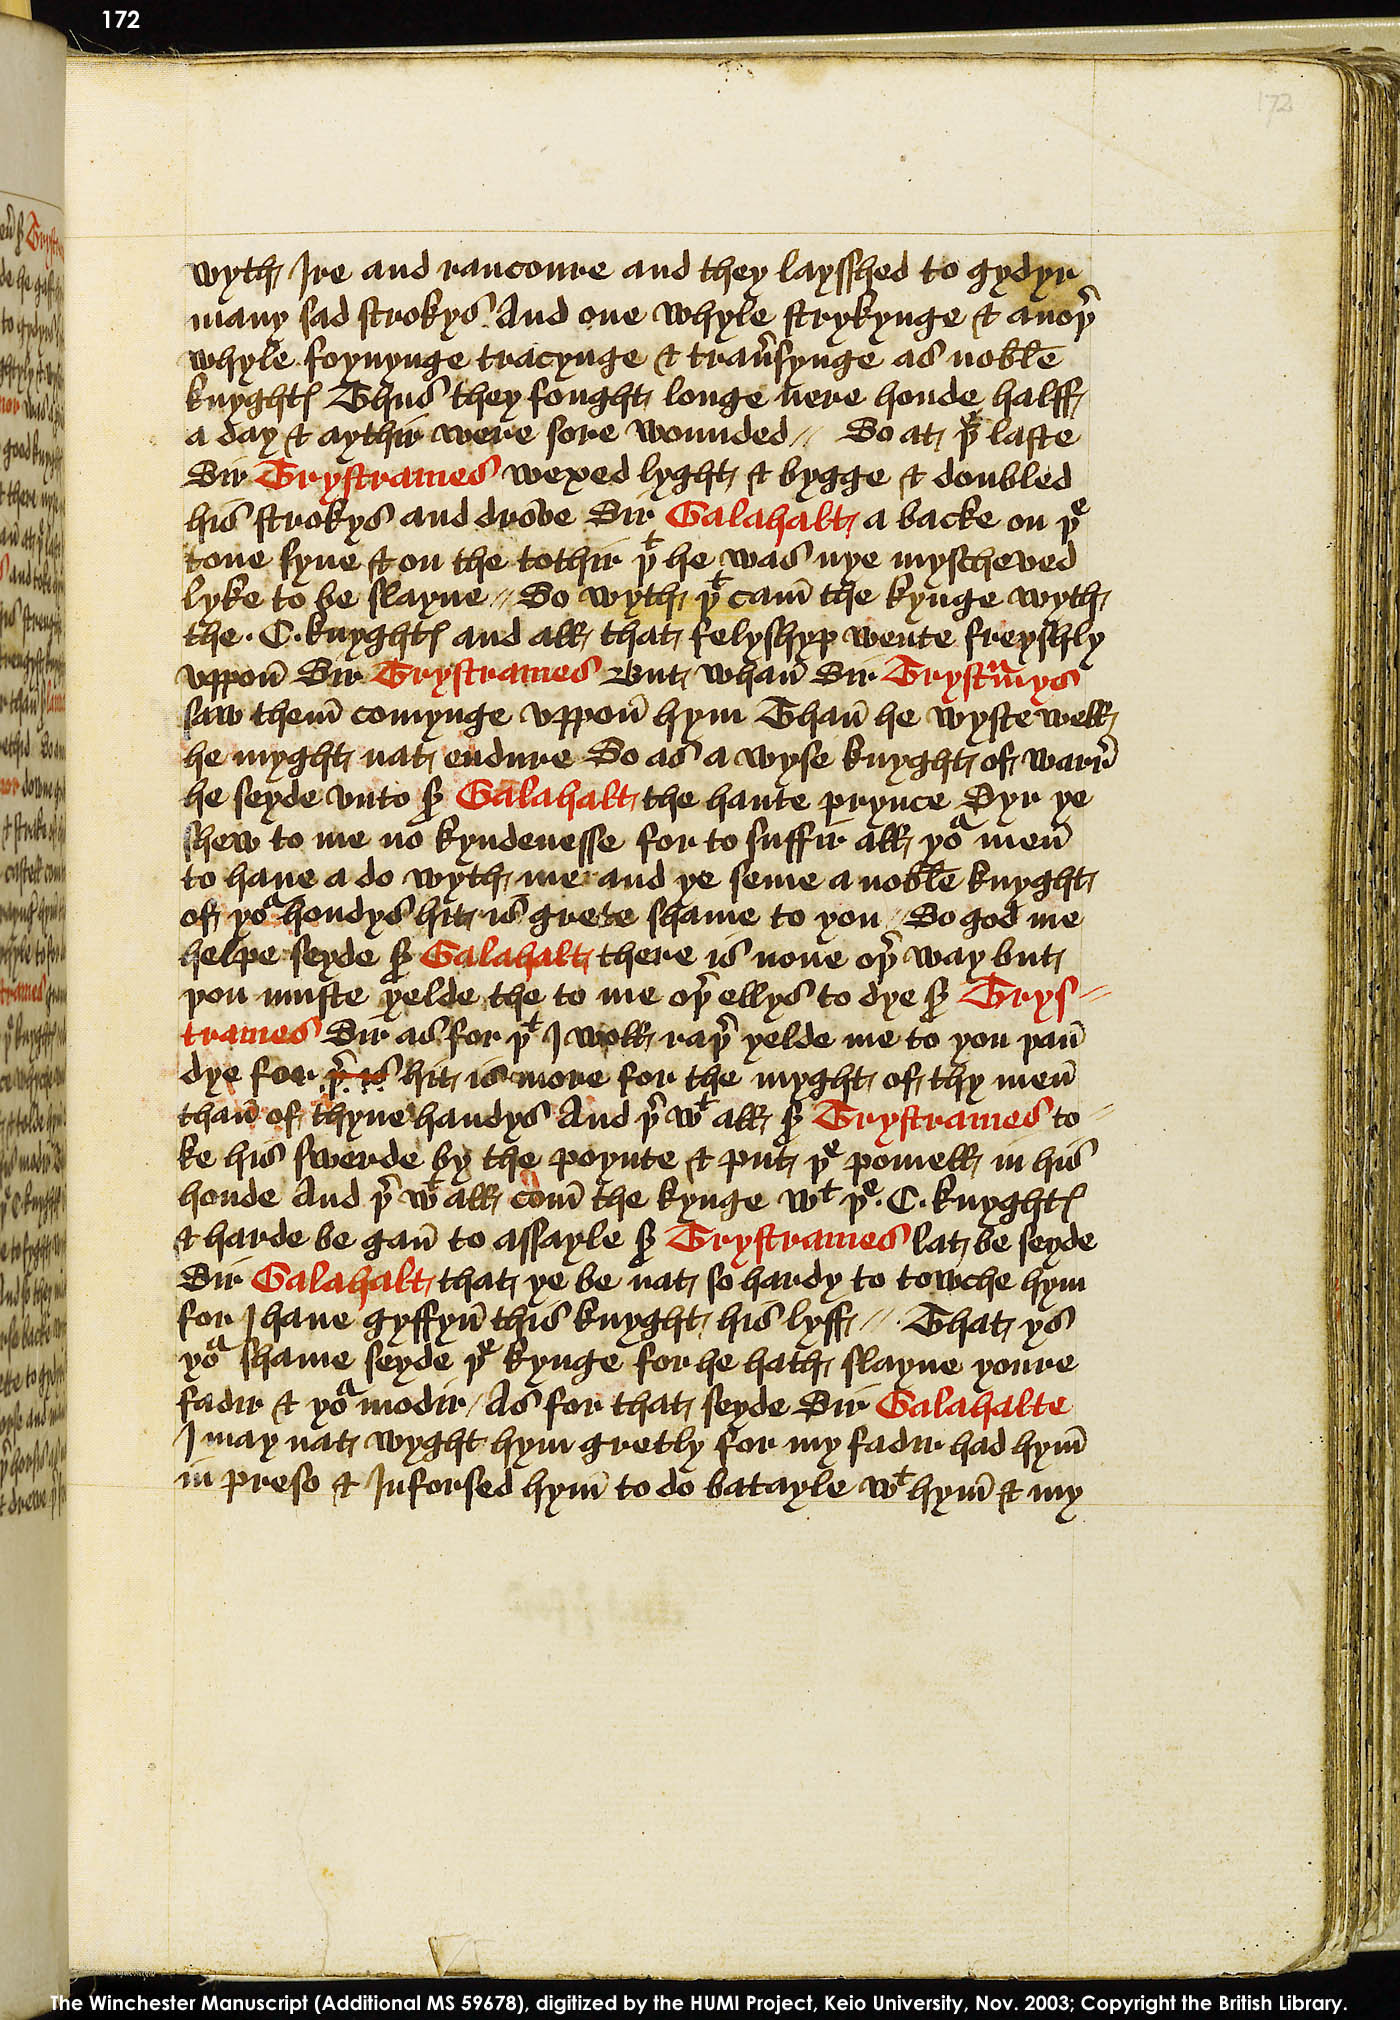 172
172
wyth Ire and rancoure and they laysshed to gydyr
many sad strokys And one whyle strykynge & anoþ̉
whyle foynynge tracynge & traủsynge as noble
knyghtꝭ Thus they fought longe nere honde halff
a day & aythir were sore wounded // So at þͤ laste
Sir Trystrames wexed lyght & bygge & doubled
his strokys and drove Sir Galahalt a backe on þͤ
tone syne & on the tothir þͭ he was nye myscheved
lyke to be slayne // So wyth þͭ cam̄ the kynge wyth
the · C · knyghtꝭ and all that felyshyp wente freyshly
vppon̄ Sir Trystrames But whan̄ Sir Trystᵃmys
saw them̄ comynge vppon̄ hym Than̄ he wyste well
he myght nat endure So as a wyse knyght of warr̄
he seyde vnto ẜ Galahalt the haute prynce Syr ye
shew to me no kyndenesse for to suffir all yoᷓ men̄
to haue a do wyth me and ye seme a noble knyght
of yoᷓ hondys hit is grete shame to you // So god me
helpe seyde ẜ Galahalt there is none oþ̉ way but
þou muste yelde the to me oþ̉ ellys to dye ẜ Trys=
trames Sir as for þͭ I woll raþ̉ yelde me to you þan̄
dye for þ̉ is hit is more for the myght of thy men̄
than̄ of thyne handys And þ̉ wͭ all ẜ Trystrames to=
ke his swerde by the poynte & put þͤ pomell in his
honde And þ̉ wͭ all com̄ the kynge wͭ þͤ · C · knyghtꝭ
& harde be gan̄ to assayle ẜ Trystrames lat be seyde
Sir Galahalt that ye be nat so hardy to towche hym
for I haue gyffyn̄ this knyght his lyff // That ys
yoᷓ shame seyde þͤ kynge for he hath slayne youre
fadir & yoᷓ modir / As for that seyde Sir Galahalte
I may nat wyght hym gretly for my fadir had hym̄
in preso & Inforsed hym̄ to do batayle wͭ hym̄ & my
The Winchester Manuscript (Additional MS 59678), digitized by the HUMI Project, Keio University, Nov. 2003; Copyright the British Library.